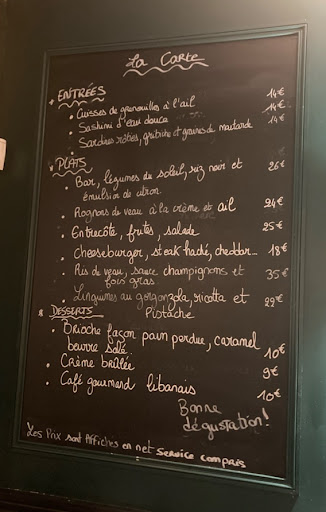 La Carte
ENTRÉES
• Cuisses de grenouilles à l'ail 14€
• Sashimi d'eau douce 14€
• Sardines rôties, gribiche et graines de moutarde 14€
PLATS
• Bar, légumes du soleil, riz noir et 26€
émulsion de citron
• Rognons de veau à la crème et ail 24€
• Entrecôte, frites, salade 25€
• Cheeseburger, steak haché, cheddar... 18€
• Ris de veau, sauce champignons et 35€
fois gras
• Linguines au gorgonzola, ricotta et 22€
Pistache
DESSERTS
• Brioche façon pain perdue, caramel
beurre salé 10€
• Crème brûlée 9€
• Café gourmand libanais 10€
Bonne
dégustation!
Les Prix sont Affichés en net service compris